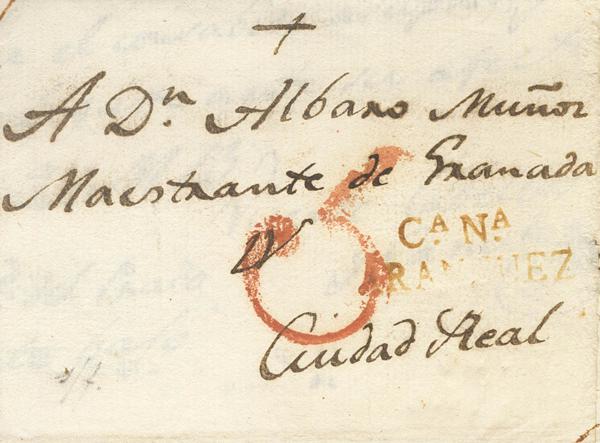 A D.ⁿ Albaro Muñoz
Maestrante de Granada
6
Cᴬ. Nᴬ.
ARANJUEZ
Ciudad Real